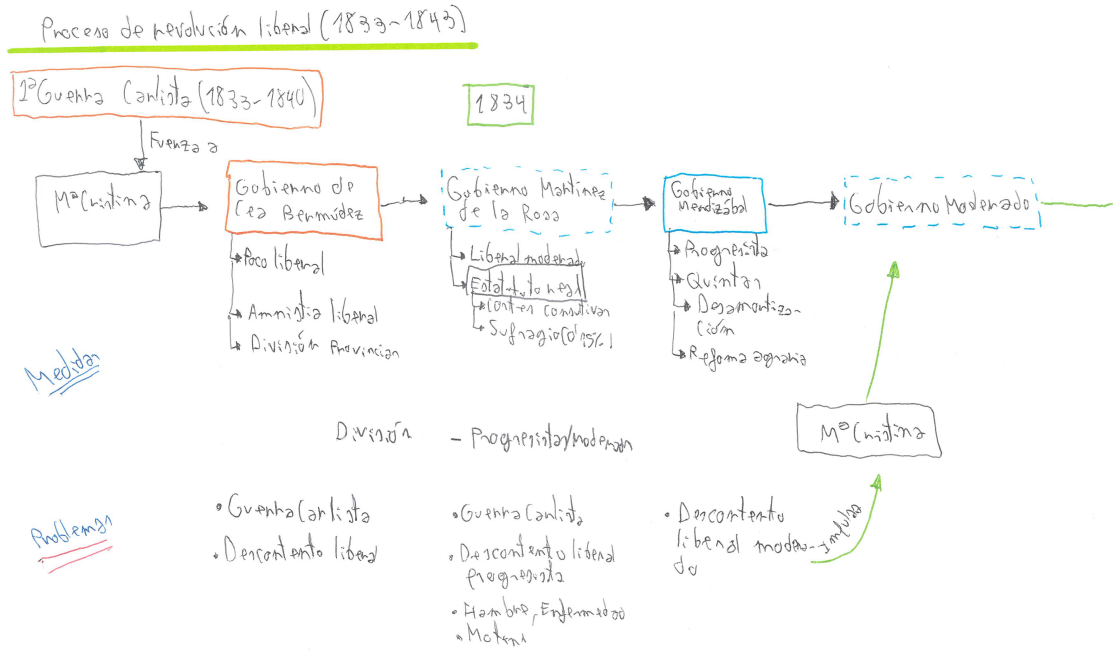 Proceso de revolución liberal (1833-1843)
1ª Guerra Carlista (1833-1840)
1834
Fuerza a
Mª Cristina
Gobierno de
Cea Bermúdez
Gobierno Martínez
de la Rosa
Gobierno
Mendizábal
Gobierno Moderado
Poco liberal
Amnistía liberal
División Provincias
Liberal moderado
Estatuto real
Cortes
Sufragio (0'15%)
Progresista
Quintas
Desamortiza-
ción
Reforma agraria
Medidas
División - Progresistas/Moderados
Mª Cristina
Problemas
• Guerra Carlista
• Descontento liberal
• Guerra Carlista
• Descontento liberal
progresista
• Hambre, Enfermedad
• Descontento
liberal modera-
do
Impulsa